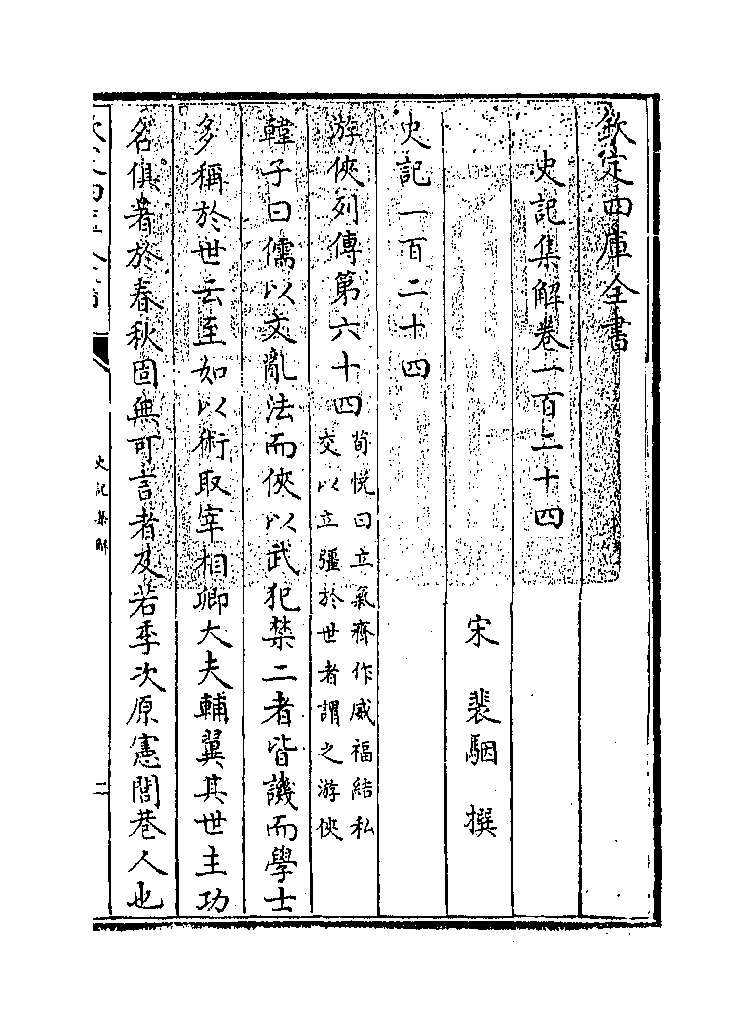 欽定四庫全書
史記集解卷一百二十四
宋 裴駰 撰
史記一百二十四
游俠列傳第六十四
荀悅曰立氣齊作威福結私
交以立彊於世者謂之游俠
韓子曰儒以文亂法而俠以武犯禁二者皆譏而學士
多稱於世云至如以術取宰相卿大夫輔翼其世主功
名俱著於春秋固無可言者及若季次原憲閭巷人也
史記集解
二